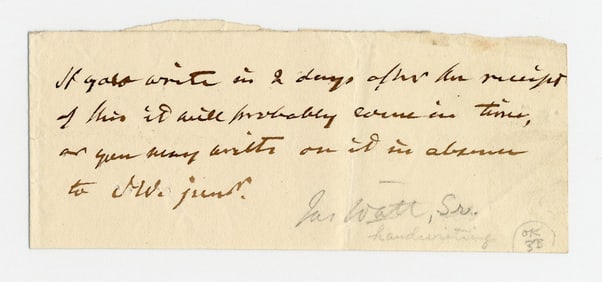 If you write in 2 days after the receipt
of this it will probably come in time,
or you may write on it in absence
to JW. junr.
Jas Watt, Sr.
handwriting
OK
3B